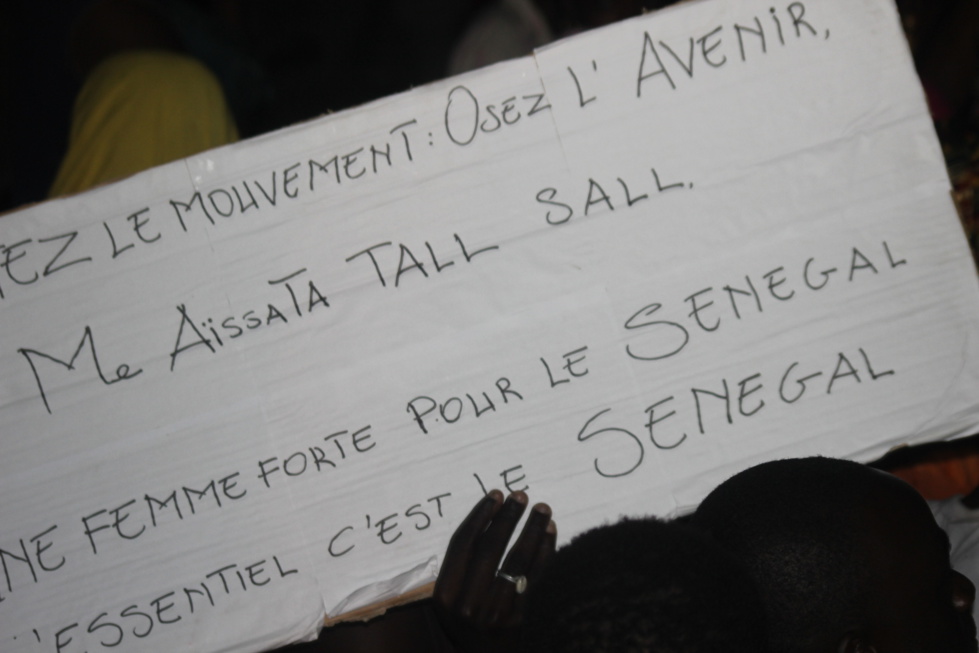 EZ LE MOUVEMENT: OSEZ L'AVENIR,
Me AïSSATA TALL SALL.
NE FEMME FORTE POUR LE SENEGAL
L'ESSENTIEL C'EST LE SENEGAL